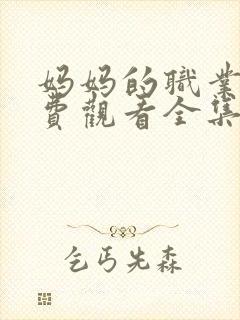 妈妈的職業
費觀看全集
乞丐先森